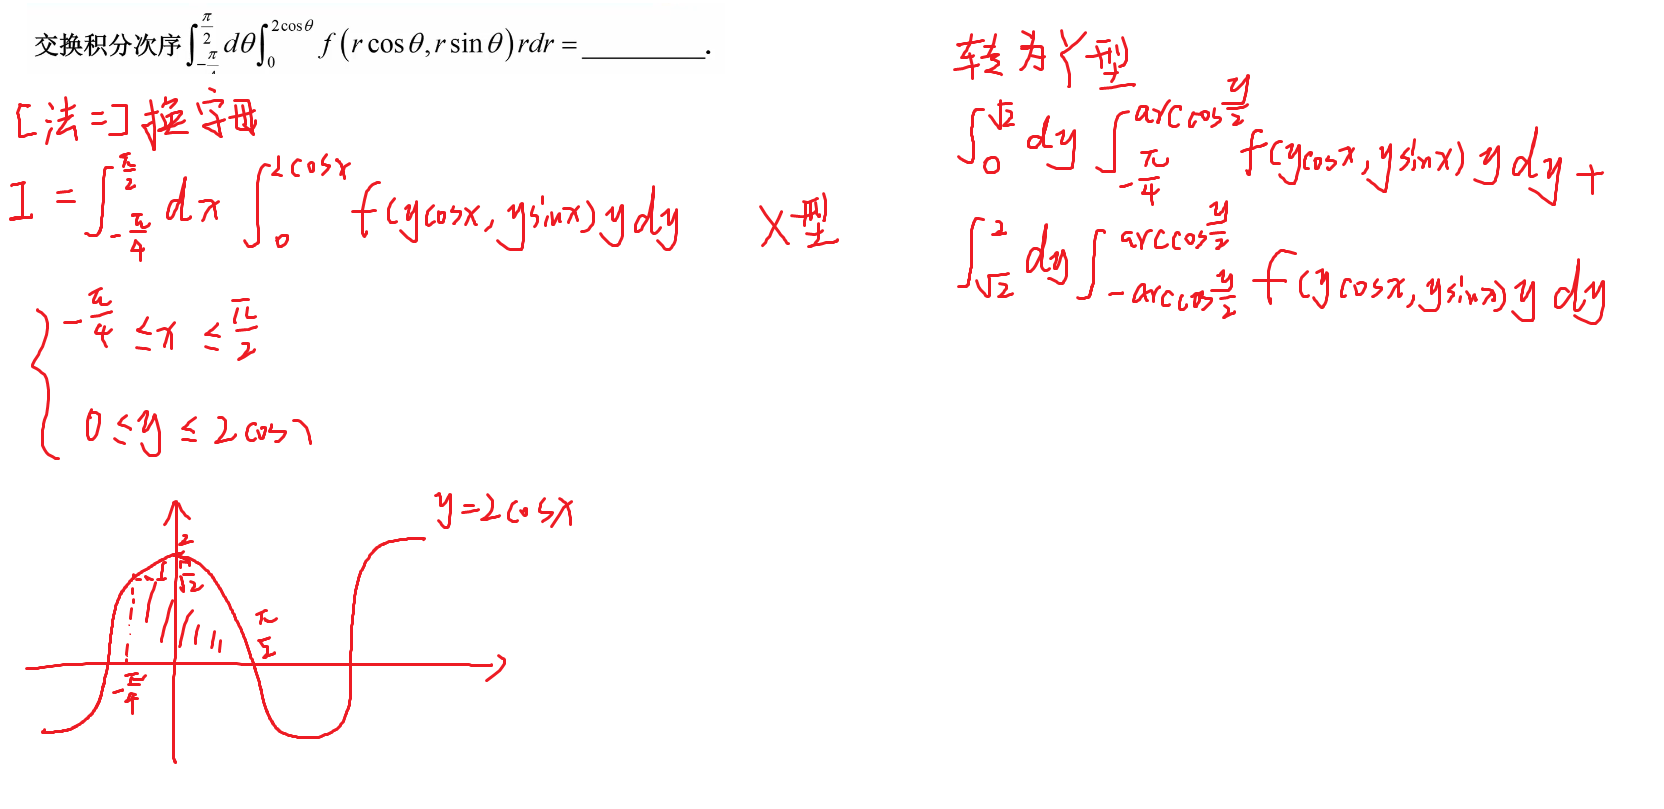 交换积分次序∫_{-π/4}^{π/2} dθ∫_0^{2cosθ} f(r cosθ, r sinθ)rdr = ________.
[法二]换字母
I = ∫_{-π/4}^{π/2} dx ∫_0^{2cosx} f(ycosx, ysinx) y dy X型
-π/4 ≤ x ≤ π/2
0 ≤ y ≤ 2cosx
y=2cosx
2
√2
π/2
-π/4
转为Y型
∫_0^{√2} dy ∫_{-π/4}^{arccos y/2} f(ycosx, ysinx) y dy +
∫_{√2}^2 dy ∫_{-arccos y/2}^{arccos y/2} f(ycosx, ysinx) y dy